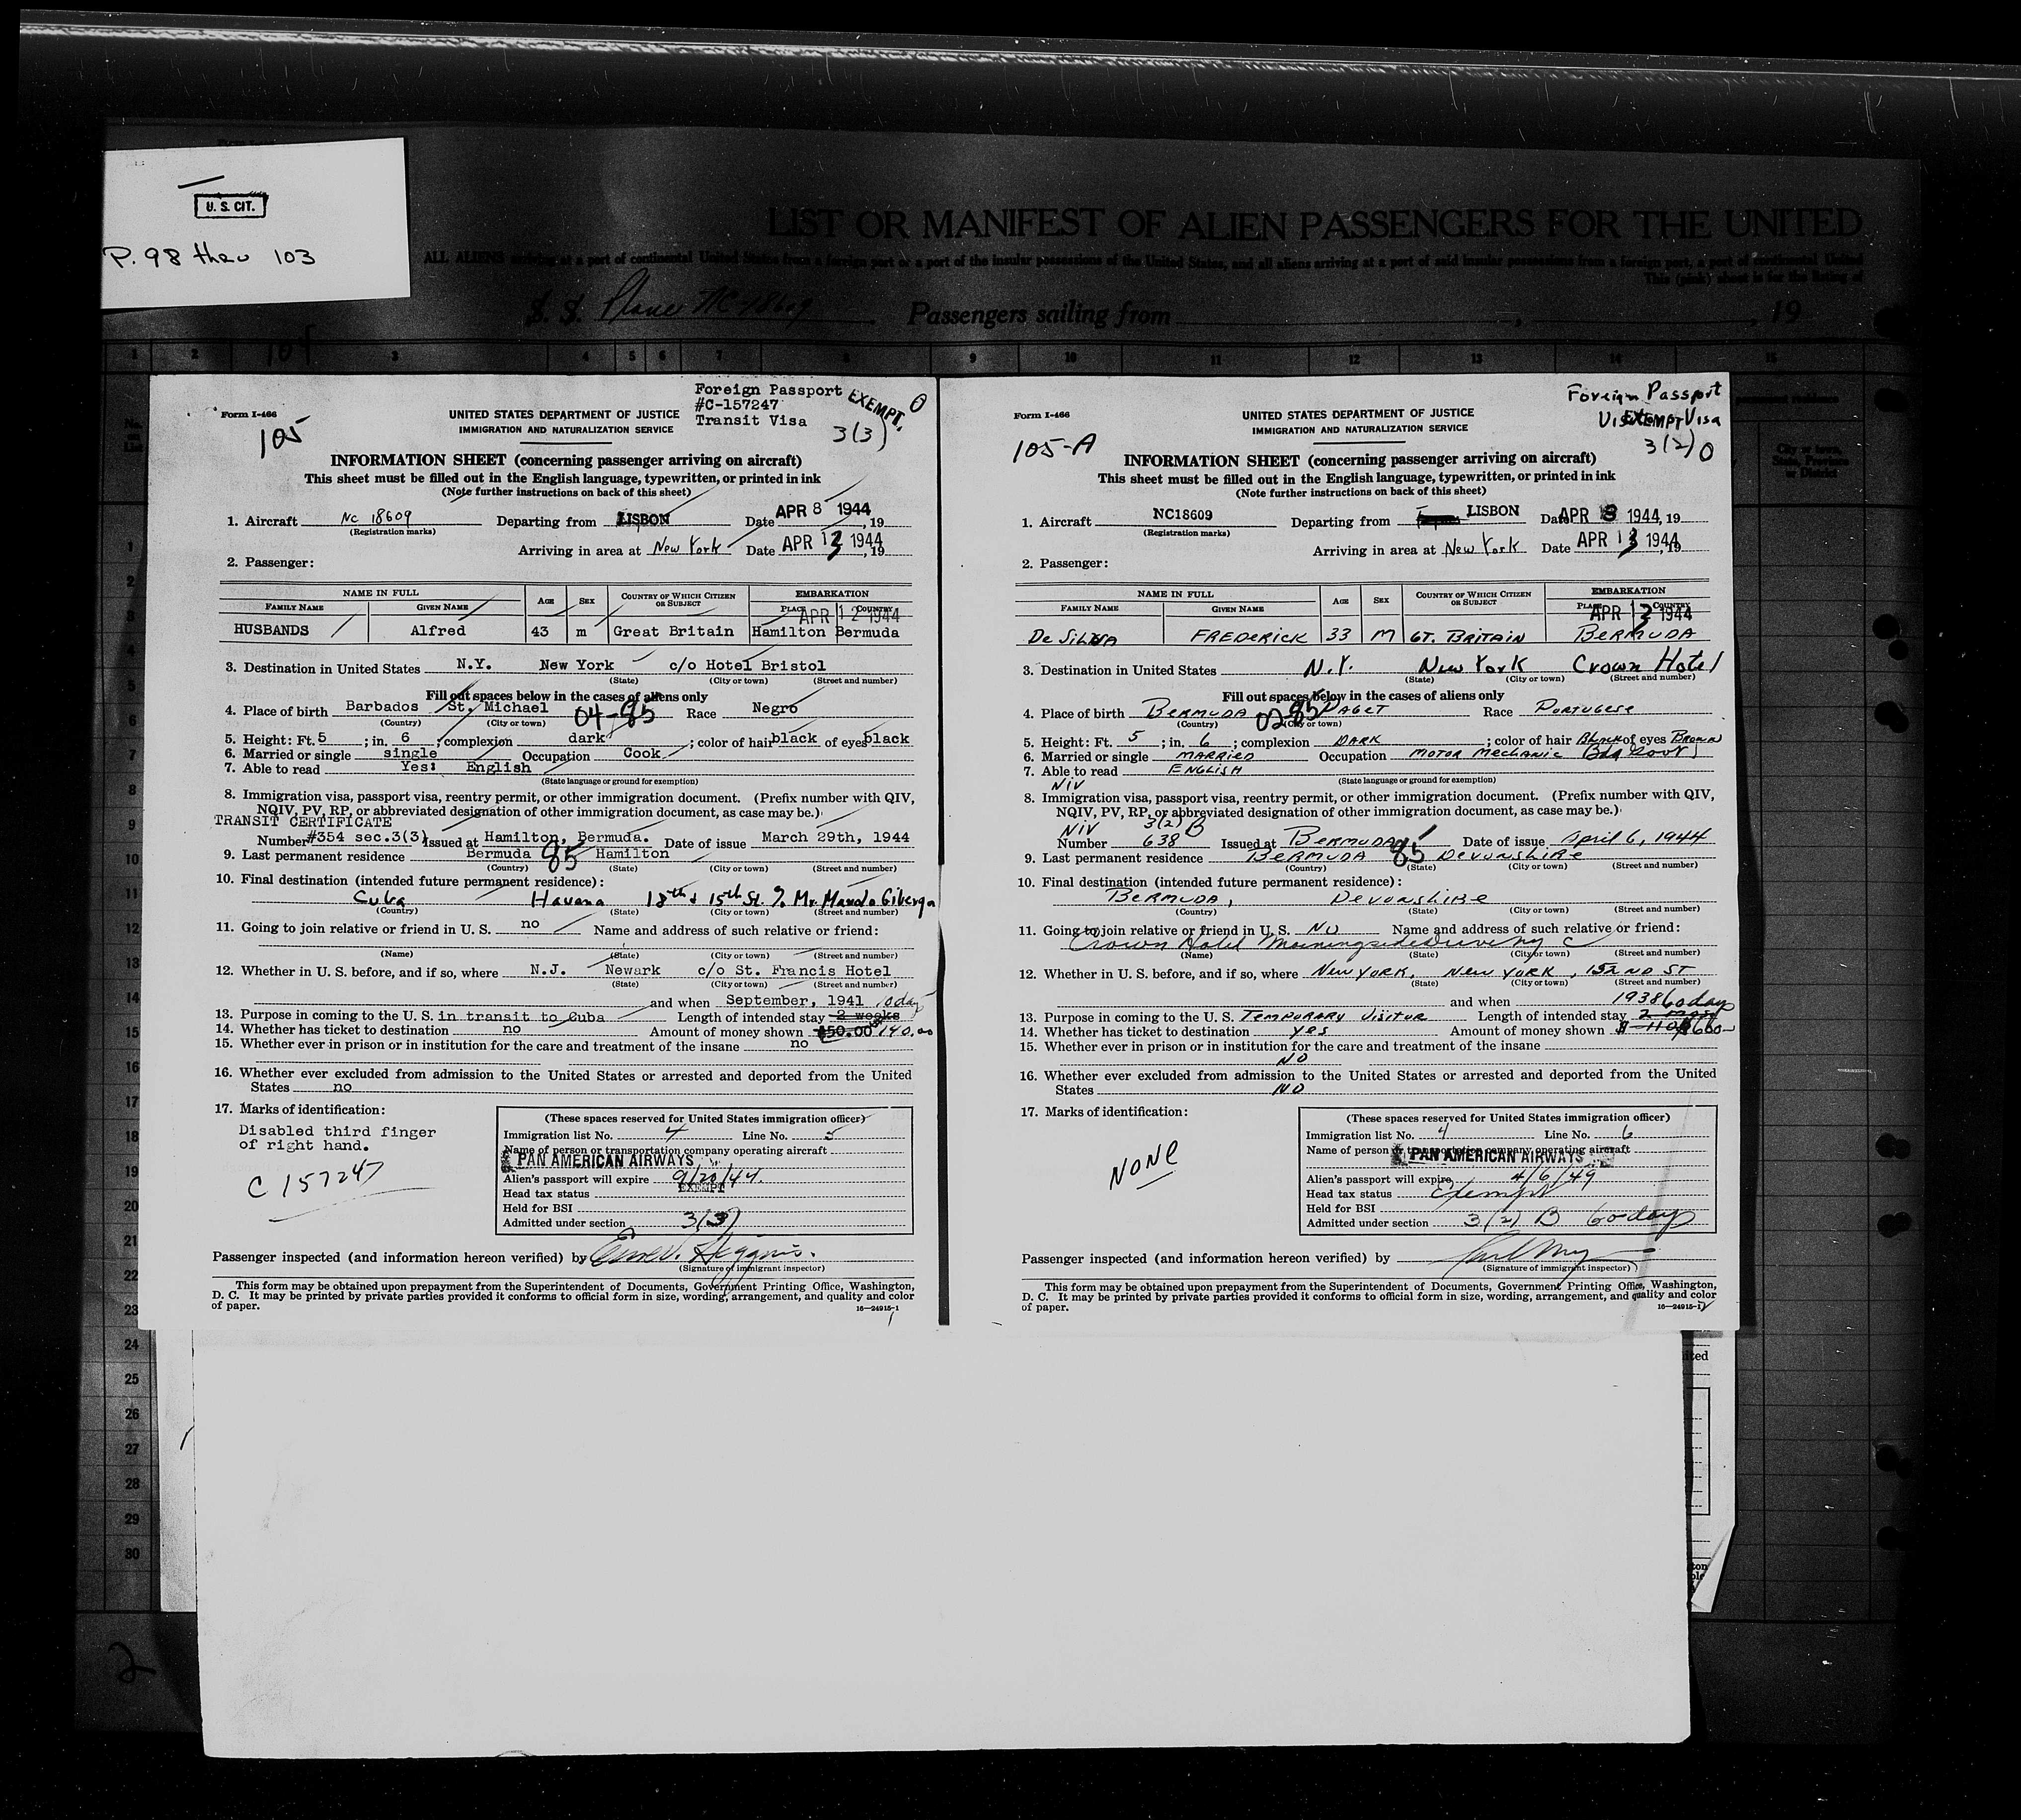 U. S. CIT.
P. 98 thru 103
LIST OR MANIFEST OF ALIEN PASSENGERS FOR THE UNITED
ALL ALIENS arriving at a port of continental United States from a foreign port or a port of the insular possessions of the United States, and all aliens arriving at a port of said insular possessions from a foreign port, a port of continental United
This (pink) sheet is for the listing of
S. S. Plane NC-18609 Passengers sailing from , 19
1 2 3 4 5 6 7 8 9 10 11 12 13 14 15
Form I-466
105
UNITED STATES DEPARTMENT OF JUSTICE
IMMIGRATION AND NATURALIZATION SERVICE
Foreign Passport
#C-157247
Transit Visa
EXEMPT.
3(3)
0
INFORMATION SHEET (concerning passenger arriving on aircraft)
This sheet must be filled out in the English language, typewritten, or printed in ink
(Note further instructions on back of this sheet)
1. Aircraft NC 18609 Departing from LISBON Date APR 8 1944, 19
(Registration marks)
Arriving in area at New York Date APR 13 1944, 19
2. Passenger:
NAME IN FULL AGE SEX COUNTRY OF WHICH CITIZEN OR SUBJECT EMBARKATION
FAMILY NAME GIVEN NAME PLACE COUNTRY
APR 12 1944
HUSBANDS Alfred 43 m Great Britain Hamilton Bermuda
3. Destination in United States N.Y. New York c/o Hotel Bristol
(State) (City or town) (Street and number)
Fill out spaces below in the cases of aliens only
4. Place of birth Barbados St. Michael 04-85 Race Negro
(Country) (City or town)
5. Height: Ft. 5 ; in. 6 ; complexion dark ; color of hair black of eyes black
6. Married or single single Occupation Cook
7. Able to read Yes: English
(State language or ground for exemption)
8. Immigration visa, passport visa, reentry permit, or other immigration document. (Prefix number with QIV,
NQIV, PV, RP, or abbreviated designation of other immigration document, as case may be.)
TRANSIT CERTIFICATE
Number #354 sec.3(3) Issued at Hamilton, Bermuda. Date of issue March 29th, 1944
9. Last permanent residence Bermuda 85 Hamilton
(Country) (State) (City or town) (Street and number)
10. Final destination (intended future permanent residence):
Cuba Havana 18th & 15th St. % Mr. Mando Giberga
(Country) (State) (City or town) (Street and number)
11. Going to join relative or friend in U. S. no Name and address of such relative or friend:
(Name) (State) (City or town) (Street and number)
12. Whether in U. S. before, and if so, where N.J. Newark c/o St. Francis Hotel
(State) (City or town) (Street and number)
and when September, 1941
13. Purpose in coming to the U. S. in transit to Cuba Length of intended stay 2 weeks 10 days
14. Whether has ticket to destination no Amount of money shown $50.00 140.00
15. Whether ever in prison or in institution for the care and treatment of the insane no
16. Whether ever excluded from admission to the United States or arrested and deported from the United
States no
17. Marks of identification:
Disabled third finger
of right hand.
C 157247
(These spaces reserved for United States immigration officer)
Immigration list No. 4 Line No. 5
Name of person or transportation company operating aircraft
PAN AMERICAN AIRWAYS
Alien's passport will expire 9/20/44.
Head tax status EXEMPT
Held for BSI
Admitted under section 3(3)
Passenger inspected (and information hereon verified) by
(Signature of immigrant inspector)
This form may be obtained upon prepayment from the Superintendent of Documents, Government Printing Office, Washington,
D. C. It may be printed by private parties provided it conforms to official form in size, wording, arrangement, and quality and color
of paper. 16—24915-1
Form I-466
105-A
UNITED STATES DEPARTMENT OF JUSTICE
IMMIGRATION AND NATURALIZATION SERVICE
Foreign Passport
EXEMPT Visa
3(2) 0
INFORMATION SHEET (concerning passenger arriving on aircraft)
This sheet must be filled out in the English language, typewritten, or printed in ink
(Note further instructions on back of this sheet)
1. Aircraft NC18609 Departing from LISBON Date APR 8 1944, 19
(Registration marks)
Arriving in area at New York Date APR 13 1944, 19
2. Passenger:
NAME IN FULL AGE SEX COUNTRY OF WHICH CITIZEN OR SUBJECT EMBARKATION
FAMILY NAME GIVEN NAME PLACE COUNTRY
APR 12 1944
De SILVA FREDERICK 33 M GT. BRITAIN BERMUDA
3. Destination in United States N.Y. New York Crown Hotel
(State) (City or town) (Street and number)
Fill out spaces below in the cases of aliens only
4. Place of birth BERMUDA 02-85 PAGET Race PORTUGESE
(Country) (City or town)
5. Height: Ft. 5 ; in. 6 ; complexion DARK ; color of hair BLACK of eyes BROWN
6. Married or single MARRIED Occupation MOTOR MECHANIC Bda Govt
7. Able to read ENGLISH
(State language or ground for exemption)
NIV
8. Immigration visa, passport visa, reentry permit, or other immigration document. (Prefix number with QIV,
NQIV, PV, RP, or abbreviated designation of other immigration document, as case may be.)
NIV 3(2) B
Number 638 Issued at BERMUDA Date of issue April 6, 1944
9. Last permanent residence BERMUDA 85 DEVONSHIRE
(Country) (State) (City or town) (Street and number)
10. Final destination (intended future permanent residence):
BERMUDA, DEVONSHIRE
(Country) (State) (City or town) (Street and number)
11. Going to join relative or friend in U. S. NO Name and address of such relative or friend:
Crown Hotel Morningside Drive NY C
(Name) (State) (City or town) (Street and number)
12. Whether in U. S. before, and if so, where NEW YORK, NEW YORK, 152ND ST
(State) (City or town) (Street and number)
and when 1938
13. Purpose in coming to the U. S. TEMPORARY VISITOR Length of intended stay 60 days
14. Whether has ticket to destination yes Amount of money shown $ 110 $600
15. Whether ever in prison or in institution for the care and treatment of the insane
NO
16. Whether ever excluded from admission to the United States or arrested and deported from the United
States NO
17. Marks of identification:
NONE
(These spaces reserved for United States immigration officer)
Immigration list No. 4 Line No. 6
Name of person or transportation company operating aircraft
PAN AMERICAN AIRWAYS
Alien's passport will expire 4/6/49
Head tax status Exempt
Held for BSI
Admitted under section 3(2) B 60 days
Passenger inspected (and information hereon verified) by
(Signature of immigrant inspector)
This form may be obtained upon prepayment from the Superintendent of Documents, Government Printing Office, Washington,
D. C. It may be printed by private parties provided it conforms to official form in size, wording, arrangement, and quality and color
of paper. 16—24915-1
1
2
3
4
5
6
7
8
9
10
11
12
13
14
15
16
17
18
19
20
21
22
23
24
25
26
27
28
29
30
2